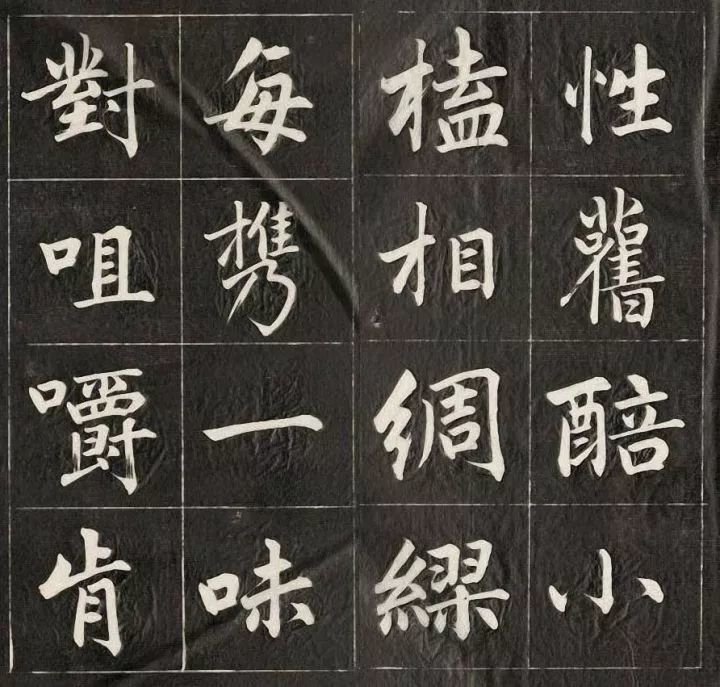 性舊醅小
榼相綢繆
每攜一味
對咀嚼肯